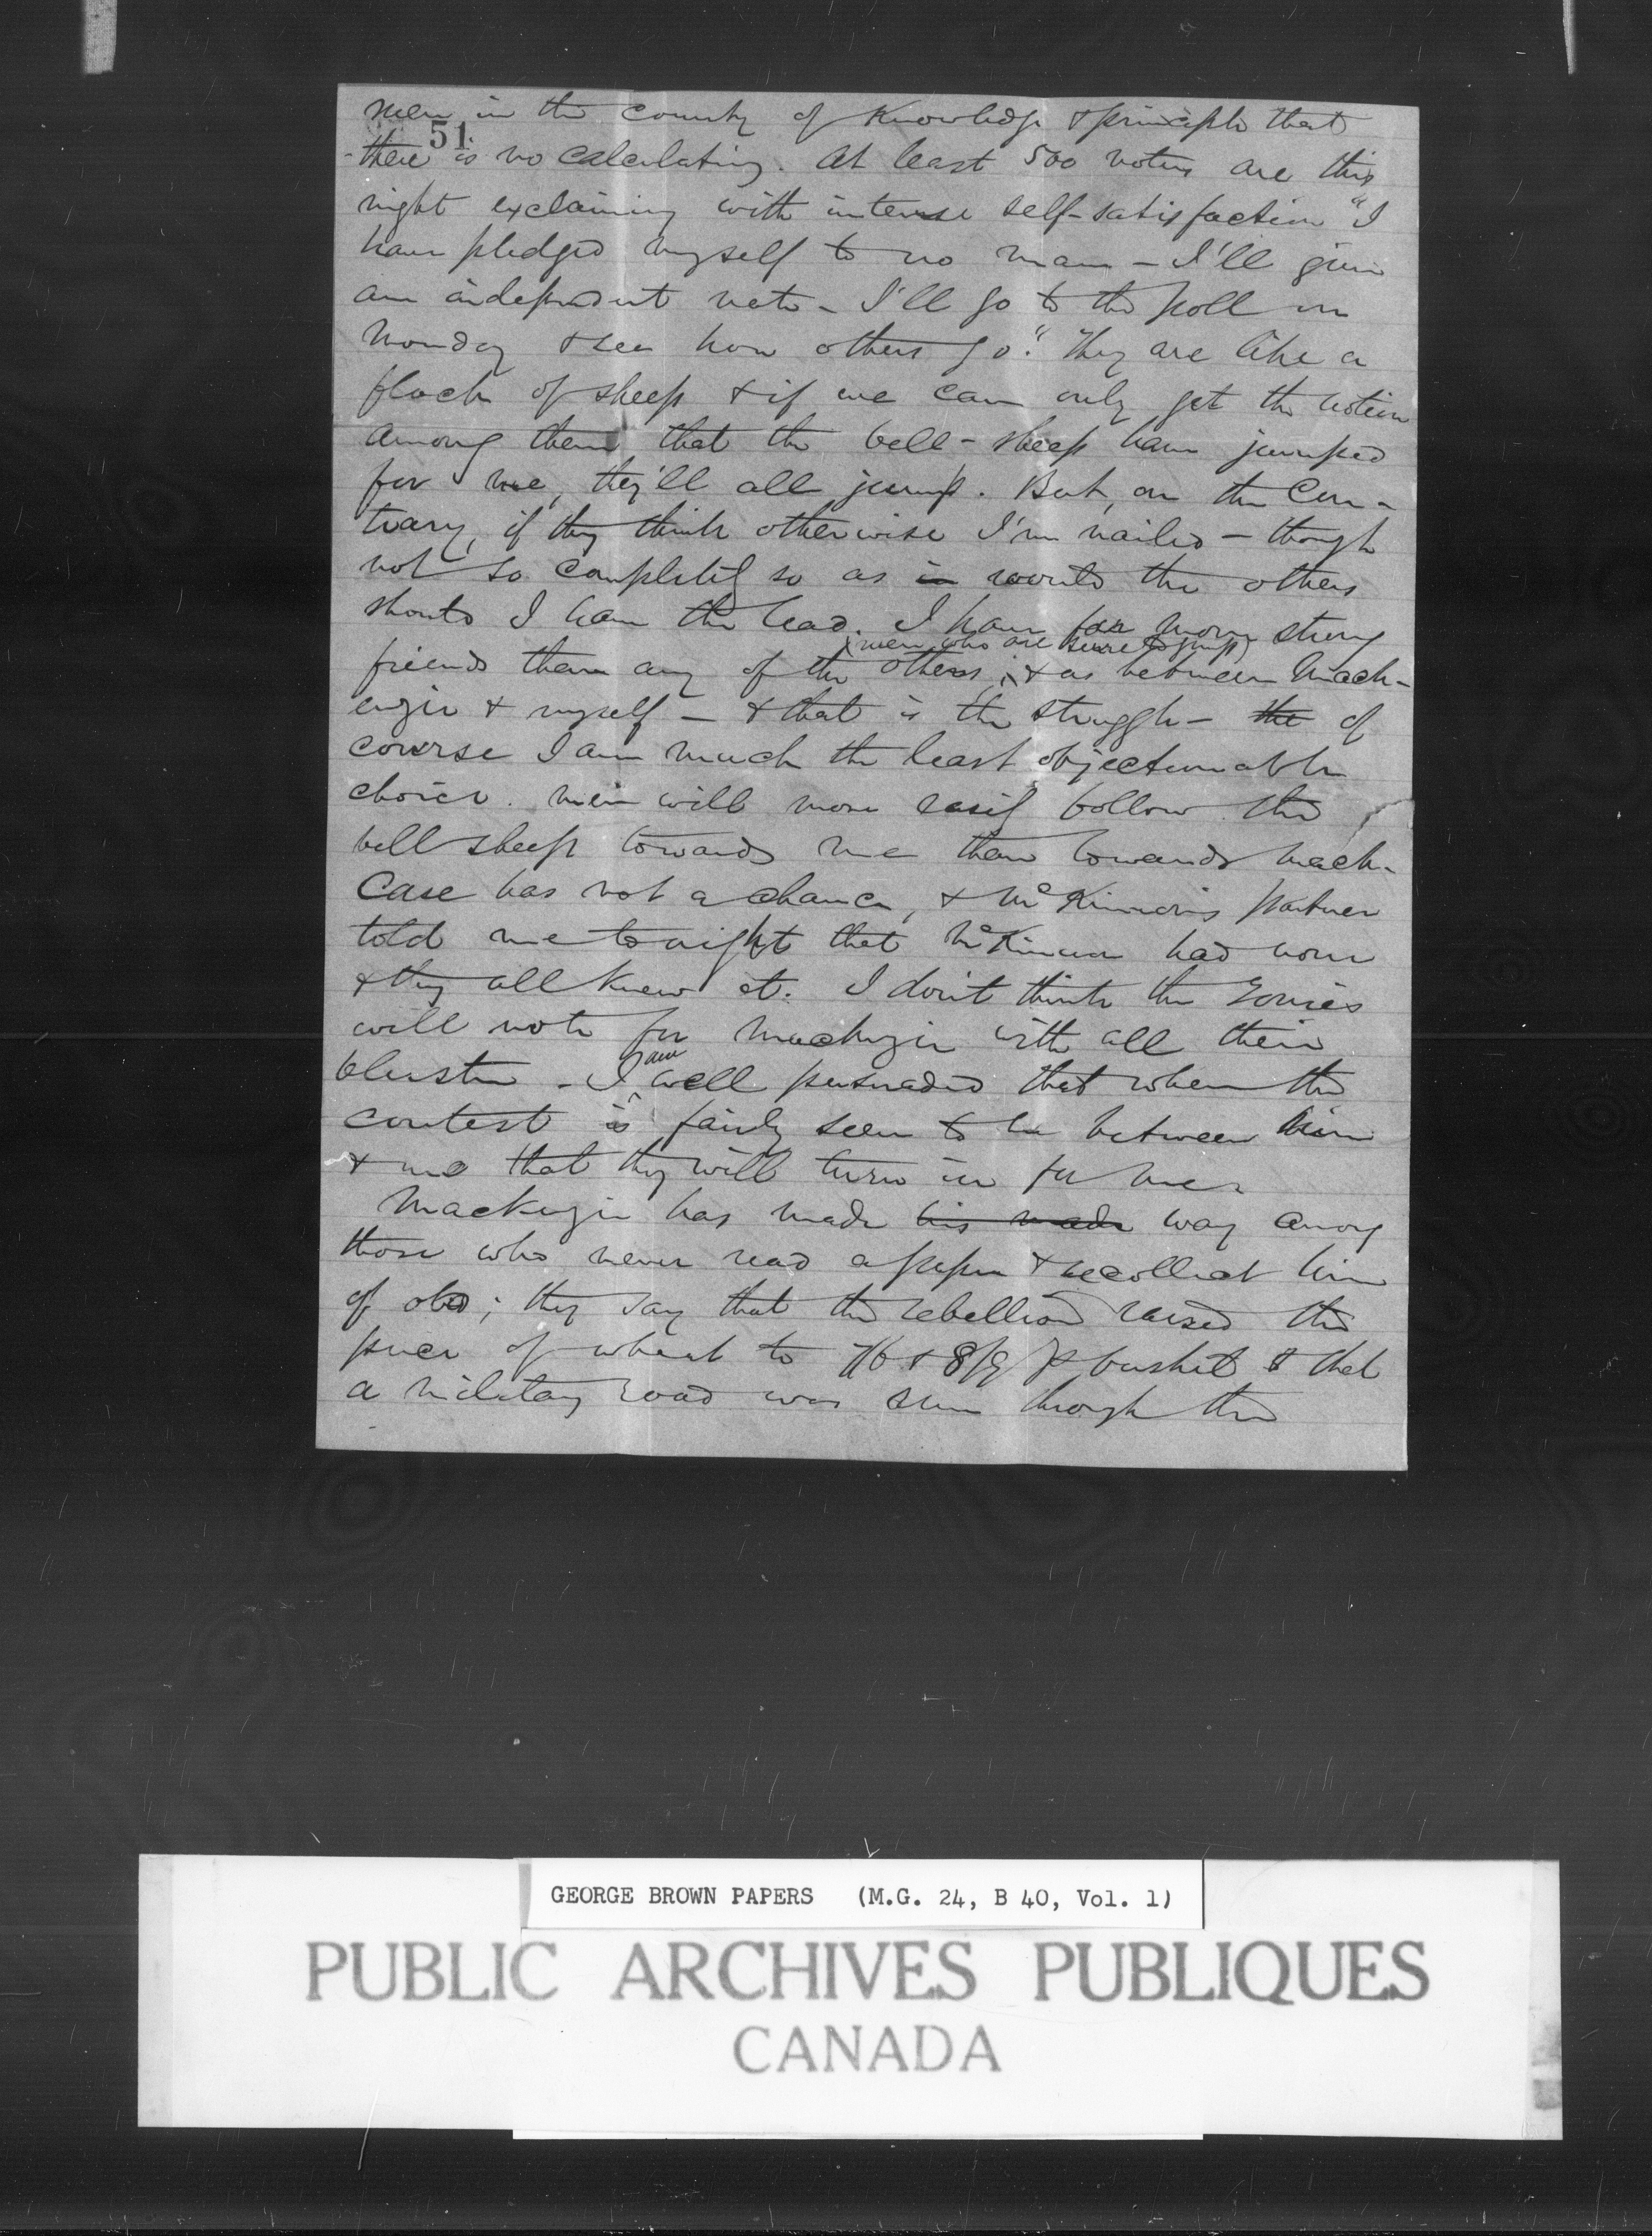 men in the county of Knowledge & principle that
51
there is no calculating. At least 500 voters are this
night exclaiming with intense self-satisfaction "I
have pledged myself to no man – I'll give
an independent vote – I'll go to the poll on
Monday & see how others go." They are like a
flock of sheep & if we can only get the notion
among them that the bell-sheep have jumped
for me, they'll all jump. But, on the con-
trary, if they think otherwise I'm nailed – though
not so completely so as in would the others
should I have the lead. I have far more strong
(men who are sure to jump)
friends than any of the others; & as between Mack-
enzie & myself – & that is the struggle – the of
course I am much the least objectionable
choice. Men will more easily follow the
bell sheep towards me than towards Mack.
Case has not a chance, & McKinnon's partner
told me tonight that McKinnon had none
& they all knew it. I don't think the Tories
will vote for Mackenzie with all their
bluster – I am well persuaded that when the
contest is fairly seen to be between him
& me that they will turn in for me.
Mackenzie has made his made way among
those who never read a paper & recollect him
of old; they say that the rebellion raised the
price of wheat to 7/6 & 8/9 ⅌ bushel & that
a military road was run through the
GEORGE BROWN PAPERS (M.G. 24, B 40, Vol. 1)
PUBLIC ARCHIVES PUBLIQUES
CANADA